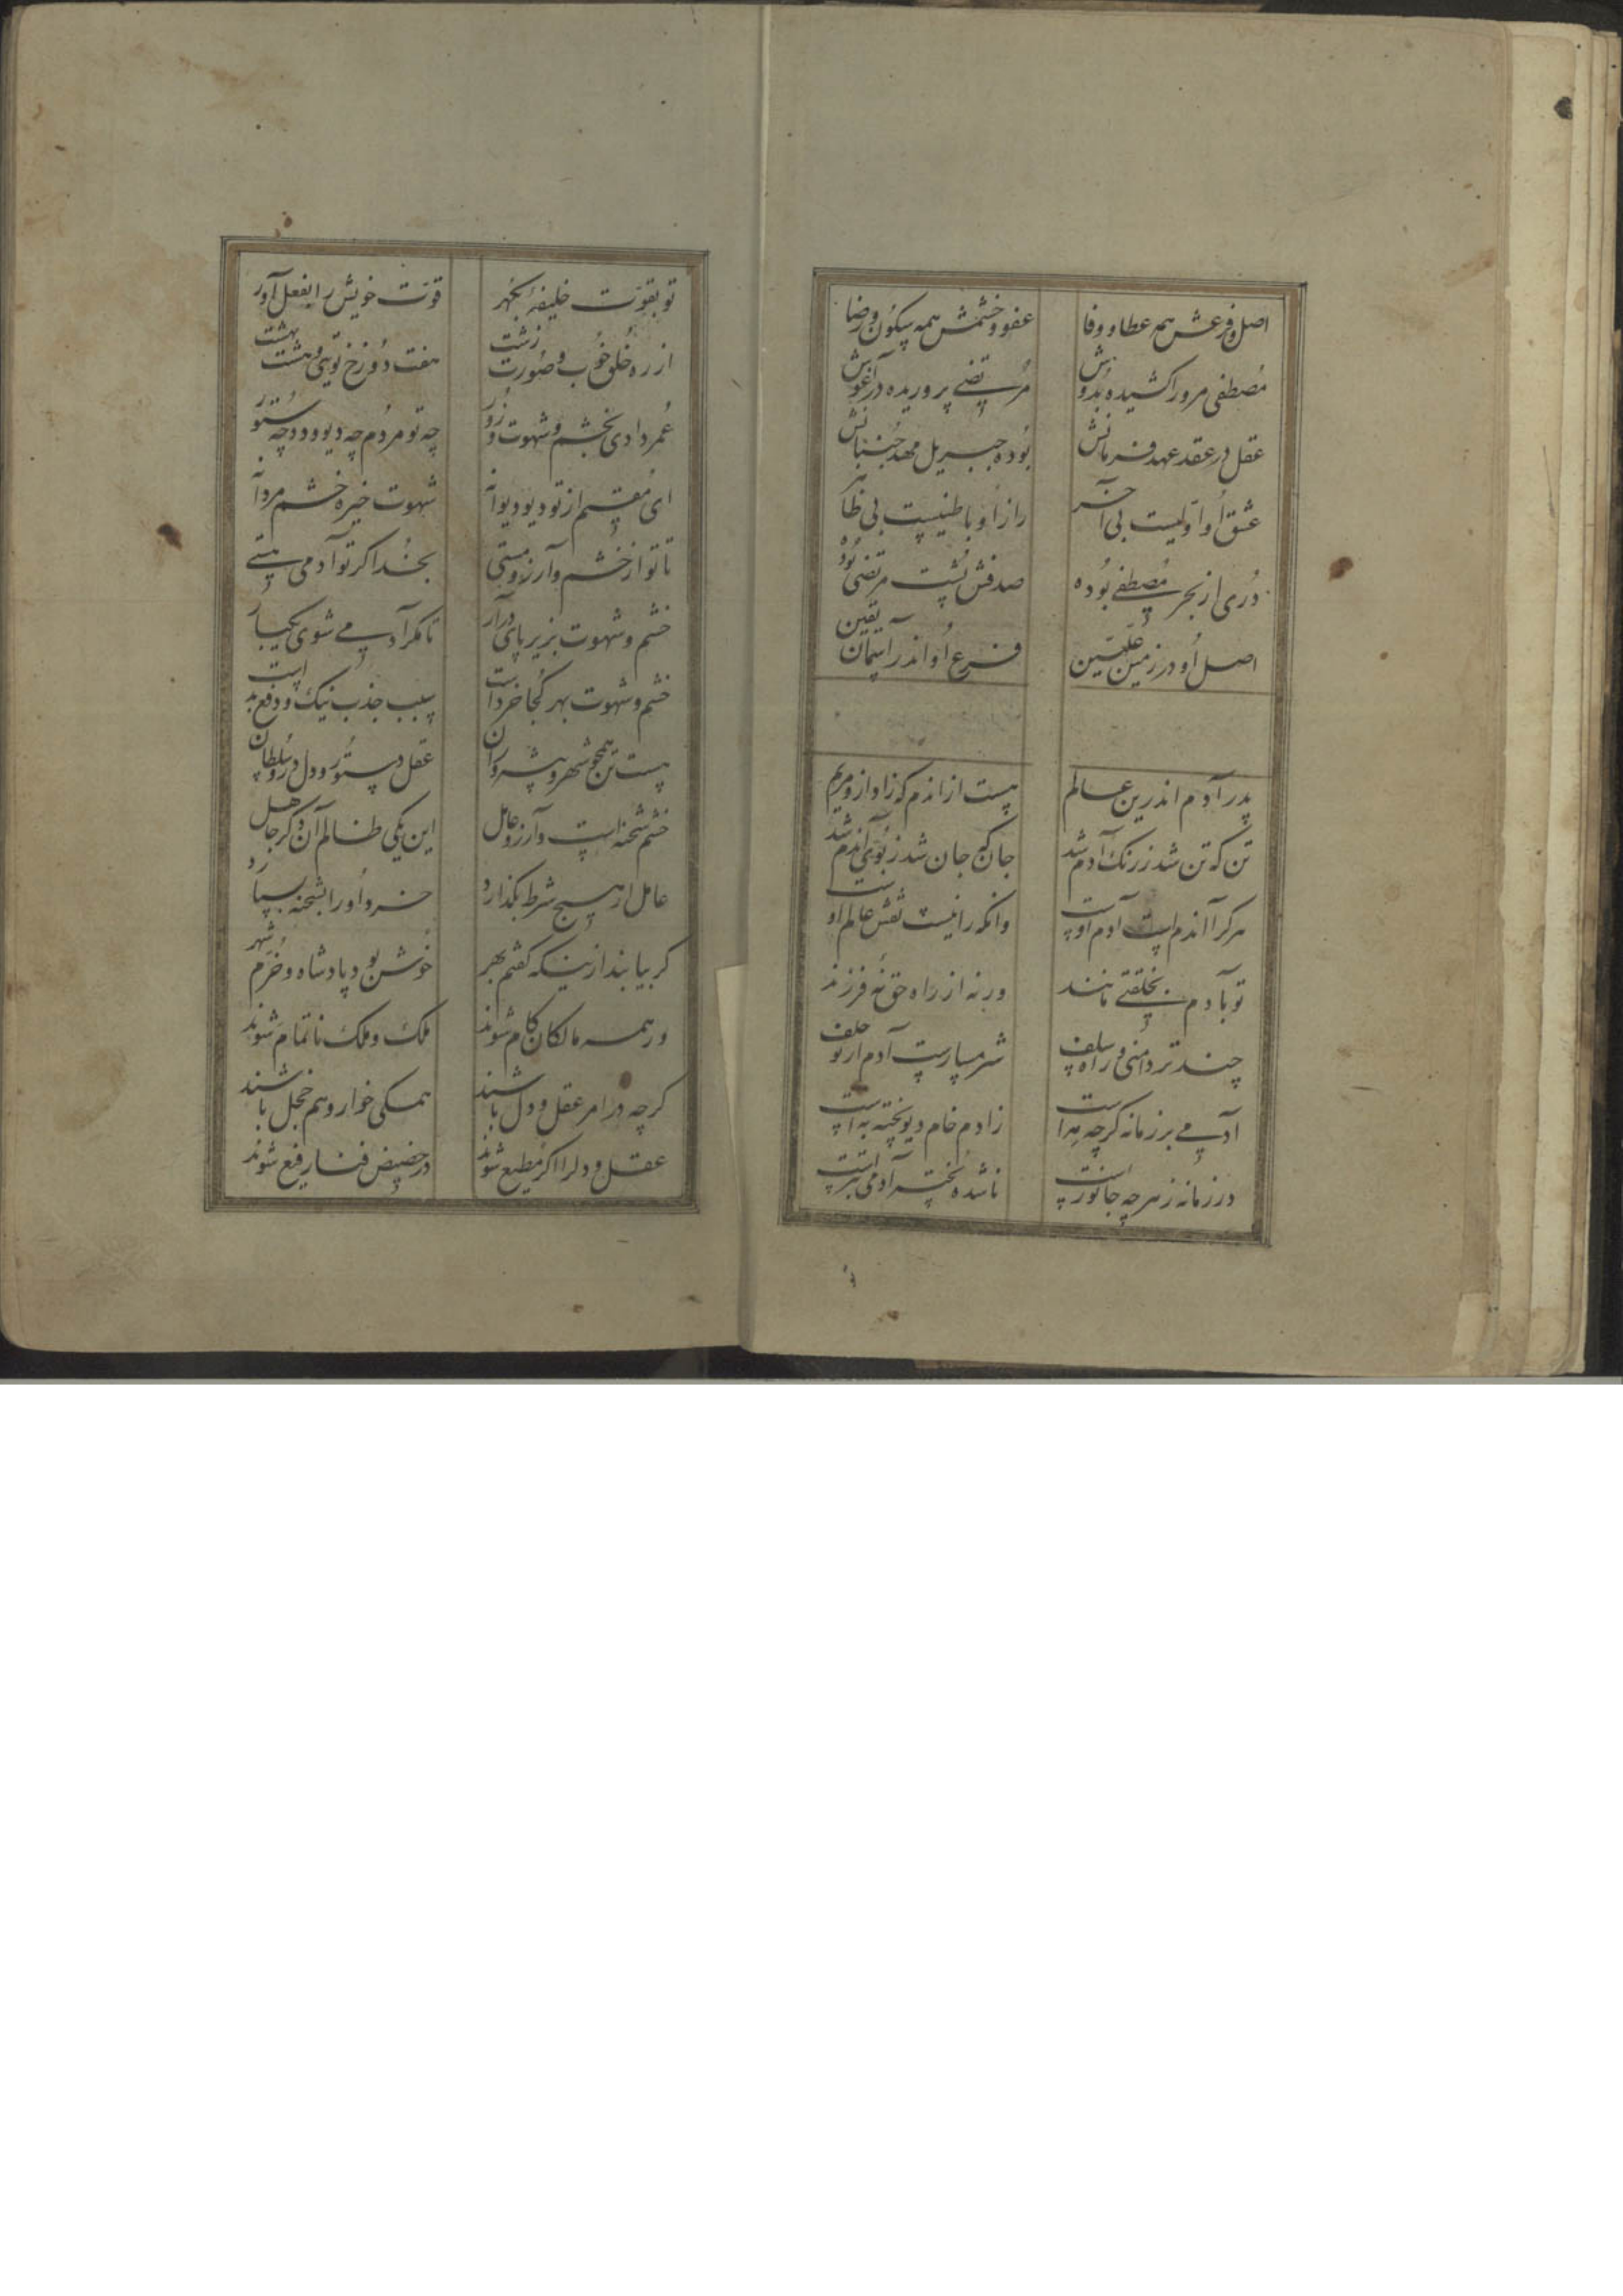 اصل و فرعش همه عطا و وفا عفو و خشمش همه سکون و رضا
مصطفی مرورا کشیده بدوش مرتضی پروریده در آغوش
عقل در عقد عهد و فرمانش بوده جبریل مهد جنبانش
عشق او اولیست بی آخر راز او باطنیست بی ظاهر
دری از بحر مصطفی بوده صدفش پشت مرتضی بوده
اصل او در زمین علیین فرع او اندر آسمان یقین
پدر آدم اندرین عالم هست از اندم که زاد ازو مریم
تن که تن شد ز رنک آدم شد جان که جان شد ز بوی آندم شد
هرکرا آندم است آدم اوست وانکه را نیست نقش عالم اوست
تو بآدم بخلقتی مانند ورنه از راه حق نه فرزند
چند تر دامنی و راه سلف شرمسارست آدم از تو خلف
آدمی بر زمانه کرچه مه است زادم خام دیو پخته به است
در زمانه ز هرچه جانورست ناشده پخته آدمی بترست
تو بقوت خلیفه بکهر قوت خویش را بفعل آور
از ره خلق خوب و صورت زشت هفت دوزخ توئی و هشت بهشت
عمر دادی بخشم و شهوت و زور چه تو مردم چه دیو و دد چه ستور
ای مقیم از تو دیو دیوانه شهوت خیره خشم مردانه
تا تو از خشم و آرزو مستی بخدا کر تو آدمی هستی
خشم و شهوت بزیر پای درآر تا مکر آدمی شوی یکبار
خشم و شهوت بهر کجا خرد است سبب جذب نیک و دفع بد است
هست تن همچو شهر و پیشه وران عقل دستور و دل درو سلطان
خشم شحنه است و آرزو عامل این یکی ظالم آن دکر جاهل
عامل ار هیچ شرط بکذارد خسرو او را بشحنه بسپارد
کر بیابند ازینکه کفتم بهر خوش بود پادشاه و خرم شهر
ور همه مالکان کام شوند ملک و ملک ناتمام شوند
کرچه در امر عقل و دل باشند همکی خوار و هم خجل باشند
عقل و دل را اکر مطیع شوند در حضیض فنا رفیع شوند